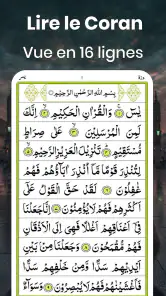 Lire le Coran
Vue en 16 lignes
بِسْمِ اللهِ الرَّحْمٰنِ الرَّحِيْمِ
يٰسٓ ۝ وَالْقُرْاٰنِ الْحَكِيْمِ ۝ اِنَّكَ
لَمِنَ الْمُرْسَلِيْنَ ۝ عَلٰى صِرَاطٍ
مُّسْتَقِيْمٍ ۝ تَنْزِيْلَ الْعَزِيْزِ الرَّحِيْمِ ۝
لِتُنْذِرَ قَوْمًا مَّاۤ اُنْذِرَ اٰبَآؤُهُمْ فَهُمْ
غٰفِلُوْنَ ۝ لَقَدْ حَقَّ الْقَوْلُ عَلٰۤى
اَكْثَرِهِمْ فَهُمْ لَا يُؤْمِنُوْنَ ۝ اِنَّا جَعَلْنَا
فِيْۤ اَعْنَاقِهِمْ اَغْلٰلًا فَهِيَ اِلَى الْاَذْقَانِ
فَهُمْ مُّقْمَحُوْنَ ۝ وَجَعَلْنَا مِنْۢ بَيْنِ
اَيْدِيْهِمْ سَدًّا وَّمِنْ خَلْفِهِمْ سَدًّا
فَاَغْشَيْنٰهُمْ فَهُمْ لَا يُبْصِرُوْنَ ۝